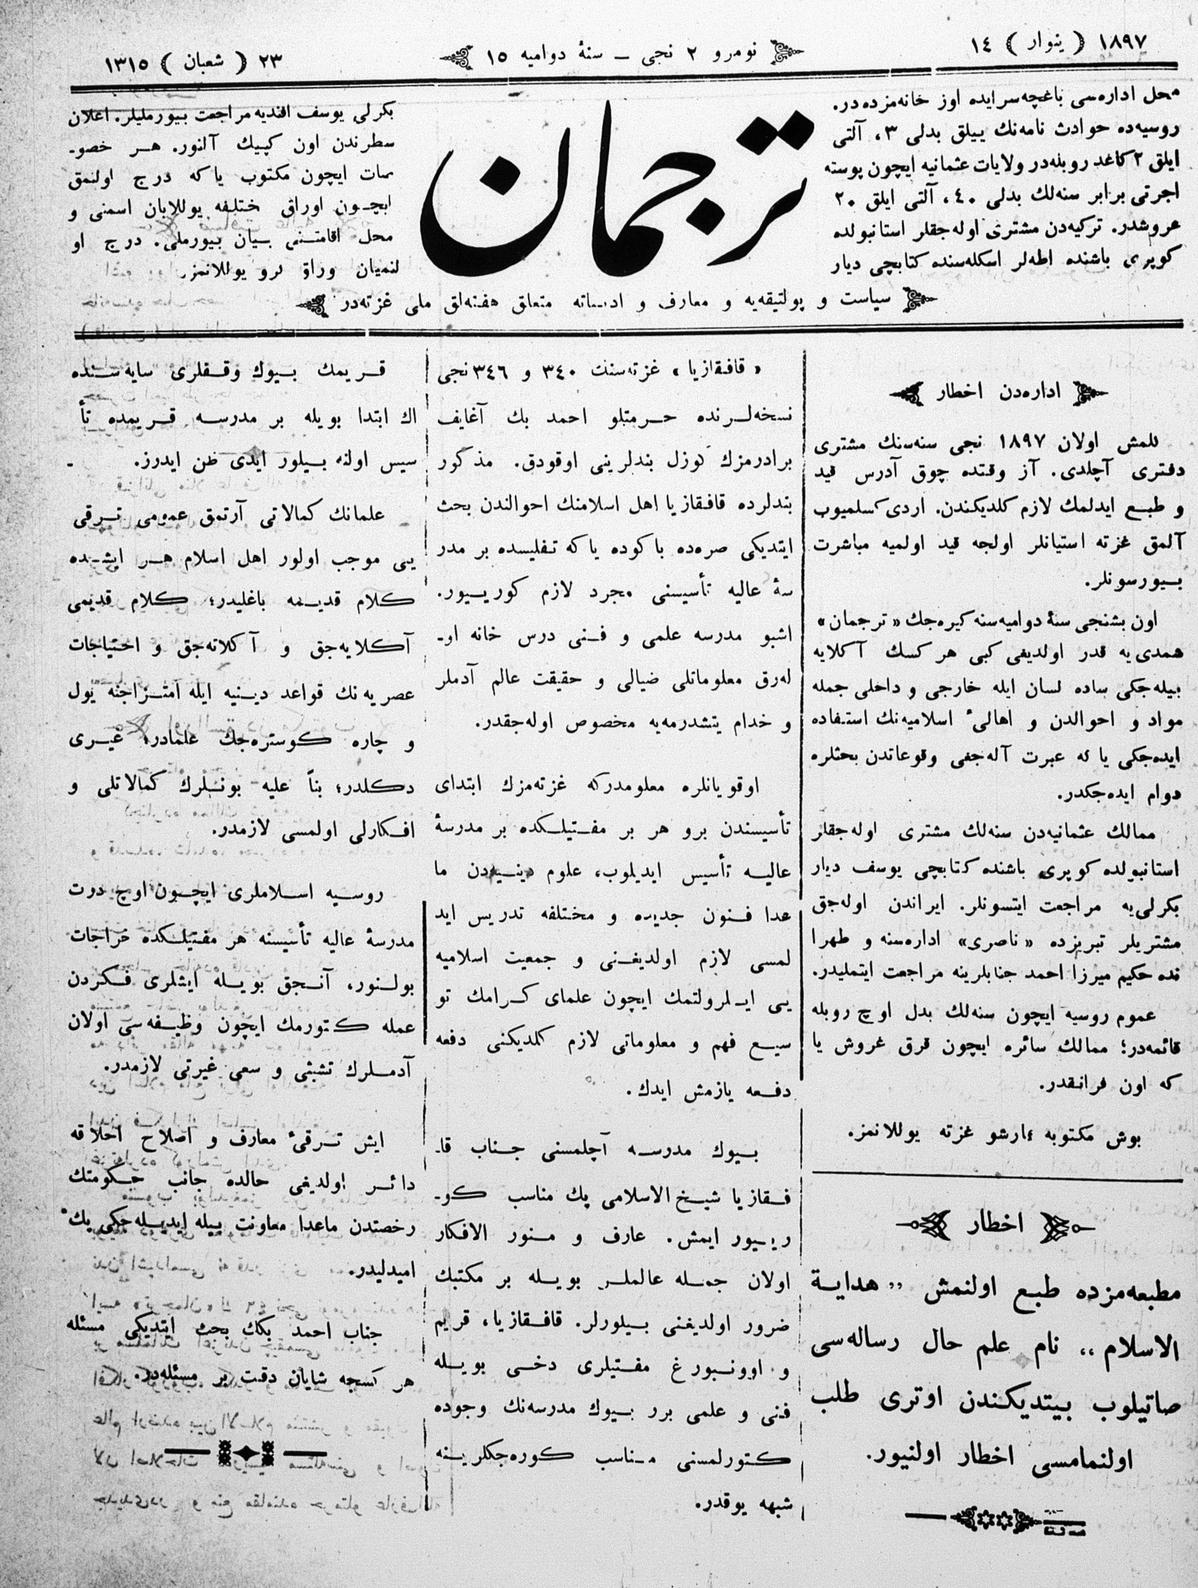 ١٨٩٧ ( ینوار ) ١٤
نومرو ٢ نجی ــ سنهٔ دوامیه ١٥
٢٣ ( شعبان ) ١٣١٥
محل اداره‌سی باغچه‌سرایده اوز خانه‌مزده‌در.
روسیه‌ده حوادث نامه‌نك ییللق بدلی ٣، آلتی
ایلق ٢ كاغد روبله‌در ولایات عثمانیه ایچون پوسته
اجرتی برابر سنه‌لك بدلی ٤٠، آلتی ایلق ٢٠
غروشدر. تركیه‌دن مشتری اوله‌جقلر استانبولده
كوپری باشنده اطه‌لر اسكله‌سنده كتابچی دیار
ترجمان
بكرلی یوسف افندیه مراجعت بیورملیلر. اعلان
سطرندن اون كپیك آلنور. هر خصو-
صات ایچون مكتوب یاكه درج اولنمق
ایچون اوراق مختلفه یوللایان اسمنی و
محل اقامتنی بیان بیورملی. درج او
لنمیان وراق كرو یوللانمز.
سیاست و پولتیقه‌یه و معارف و ادبیاته متعلق هفته‌لق ملی غزته‌در
اداره‌دن اخطار
كلمش اولان ١٨٩٧ نجی سنه‌سنك مشتری
دفتری آچلدی. آز وقتده چوق آدرس قید
و طبع ایدلمك لازم كلدیكندن. اردی كسلمیوب
آلمق غزته استیانلر اولجه قید اولمیه مباشرت
بیورسونلر.
اون بشنجی سنهٔ دوامیه‌سنه كیره‌جك «ترجمان»
همدی‌یه قدر اولدیغی كبی هر كسك آكلایه
بیله‌جكی ساده لسان ایله خارجی و داخلی جمله
مواد و احوالدن و اهالیٔ اسلامیه‌نك استفاده
ایده‌جكی یا كه عبرت آله‌جغی وقوعاتدن بحثلره
دوام ایده‌جكدر.
ممالك عثمانیه‌دن سنه‌لك مشتری اوله‌جقلر
استانبولده كوپری باشنده كتابچی یوسف دیار
بكرلی‌یه مراجعت ایتسونلر. ایراندن اوله‌جق
مشتریلر تبریزده «ناصری» اداره‌سنه و طهرا
نده حكیم میرزا احمد جنابلرینه مراجعت ایتملیدر.
عموم روسیه ایچون سنه‌لك بدل اوچ روبله
قائمه‌در؛ ممالك سائره ایچون قرق غروش یا
كه اون فرانقدر.
بوش مكتوبه قارشو غزته یوللانمز.
اخطار
مطبعه‌مزده طبع اولنمش ,, هدایة
الاسلام ,, نام علم حال رساله‌سی
صاتیلوب بیتدیكندن اوتری طلب
اولنمامسی اخطار اولنیور.
« قافقازیا » غزته‌سنك ٣٤٠ و ٣٤٦ نجی
نسخه‌لرنده حرمتلو احمد بك آغایف
برادرمزك كوزل بندلرینی اوقودق. مذكور
بندلرده قافقازیا اهل اسلامنك احوالندن بحث
ایتدیكی صره‌ده باكوده یا‌كه تفلیسده بر مدر
سهٔ عالیه تأسیسنی مجرد لازم كورییور.
اشبو مدرسه علمی و فنی درس خانه او-
له‌رق معلوماتلی ضیالی و حقیقت عالم آدملر
و خدام یتشدرمه‌یه مخصوص اوله‌جقدر.
اوقویانلره معلومدركه غزته‌مزك ابتدای
تأسیسندن برو هر بر مفتیلكده بر مدرسهٔ
عالیه تأسیس ایدیلوب، علوم دینیه‌دن ما
عدا فنون جدیده و مختلفه تدریس اید
لمسی لازم اولدیغنی و جمعیت اسلامیه
یی ایلرولتمك ایچون علمای كرامك تو
سیع فهم و معلوماتی لازم كلدیكنی دفعه
دفعه یازمش ایدك.
بیوك مدرسه آچلمسنی جناب قا-
فقازیا شیخ الاسلامی پك مناسب كو-
رییور ایمش. عارف و منور الافكار
اولان جمله عالملر بویله بر مكتبك
ضرور اولدیغنی بیلورلر. قافقازیا، قریم
و اوونبورغ مفتیلری دخی بویله
فنی و علمی برر بیوك مدرسه‌نك وجوده
كتورلمسنی مناسب كوره‌جكلرینه
شبهه یوقدر.
قریمك بیوك وقفلری سایه سنده
اك ابتدا بویله بر مدرسه قریمده تأ
سیس اولنه بیلور ایدی ظن ایدرز.
علمانك كمالاتی آرتمق عمومی ترقی
یی موجب اولور اهل اسلام هر ایشده
كلام قدیمه باغلیدر؛ كلام قدیمی
آكلایه‌جق و آكلاته‌جق و احتیاجات
عصریه‌نك قواعد دینیه ایله امتزاجنه یول
و چاره كوستره‌جك علمادر، غیری
دكلدر؛ بناً علیه بونلرك كمالاتلی و
افكارلی اولمسی لازمدر.
روسیه اسلاملری ایچون اوچ درت
مدرسهٔ عالیه تأسیسنه هر مفتیلكده خراجات
بولنور، آنجق بویله ایشلری فكردن
عمله كتورمك ایچون وظیفه‌سی اولان
آدملرك تشبثی و سعی غیرتی لازمدر.
ایش ترقیٔ معارف و اصلاح اخلاقه
دائر اولدیغی حالده جانب حكومتك
رخصتدن ماعدا معاونت بیله ایدیله‌جكی پك
امیدلیدر.
جناب احمد بكك بحث ایتدیكی مسئله
هر كسجه شایان دقت بر مسئله‌در.